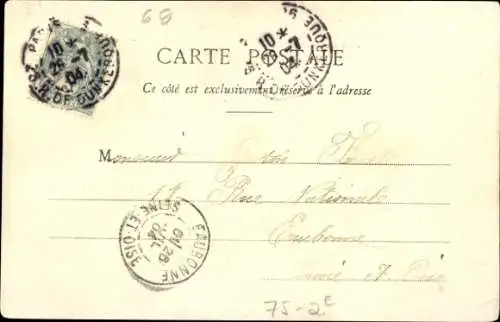 68
PARIS 10 * 26 - 7 04 R. DE DUNKERQUE
10 * 26 - 7 04 DUNKERQUE
CARTE POSTALE
Ce côté est exclusivement réservé à l'adresse
M
17 Rue Nationale
Eaubonne
et Oise
EAUBONNE 26 JUIL 04 SEINE ET OISE
75-2e